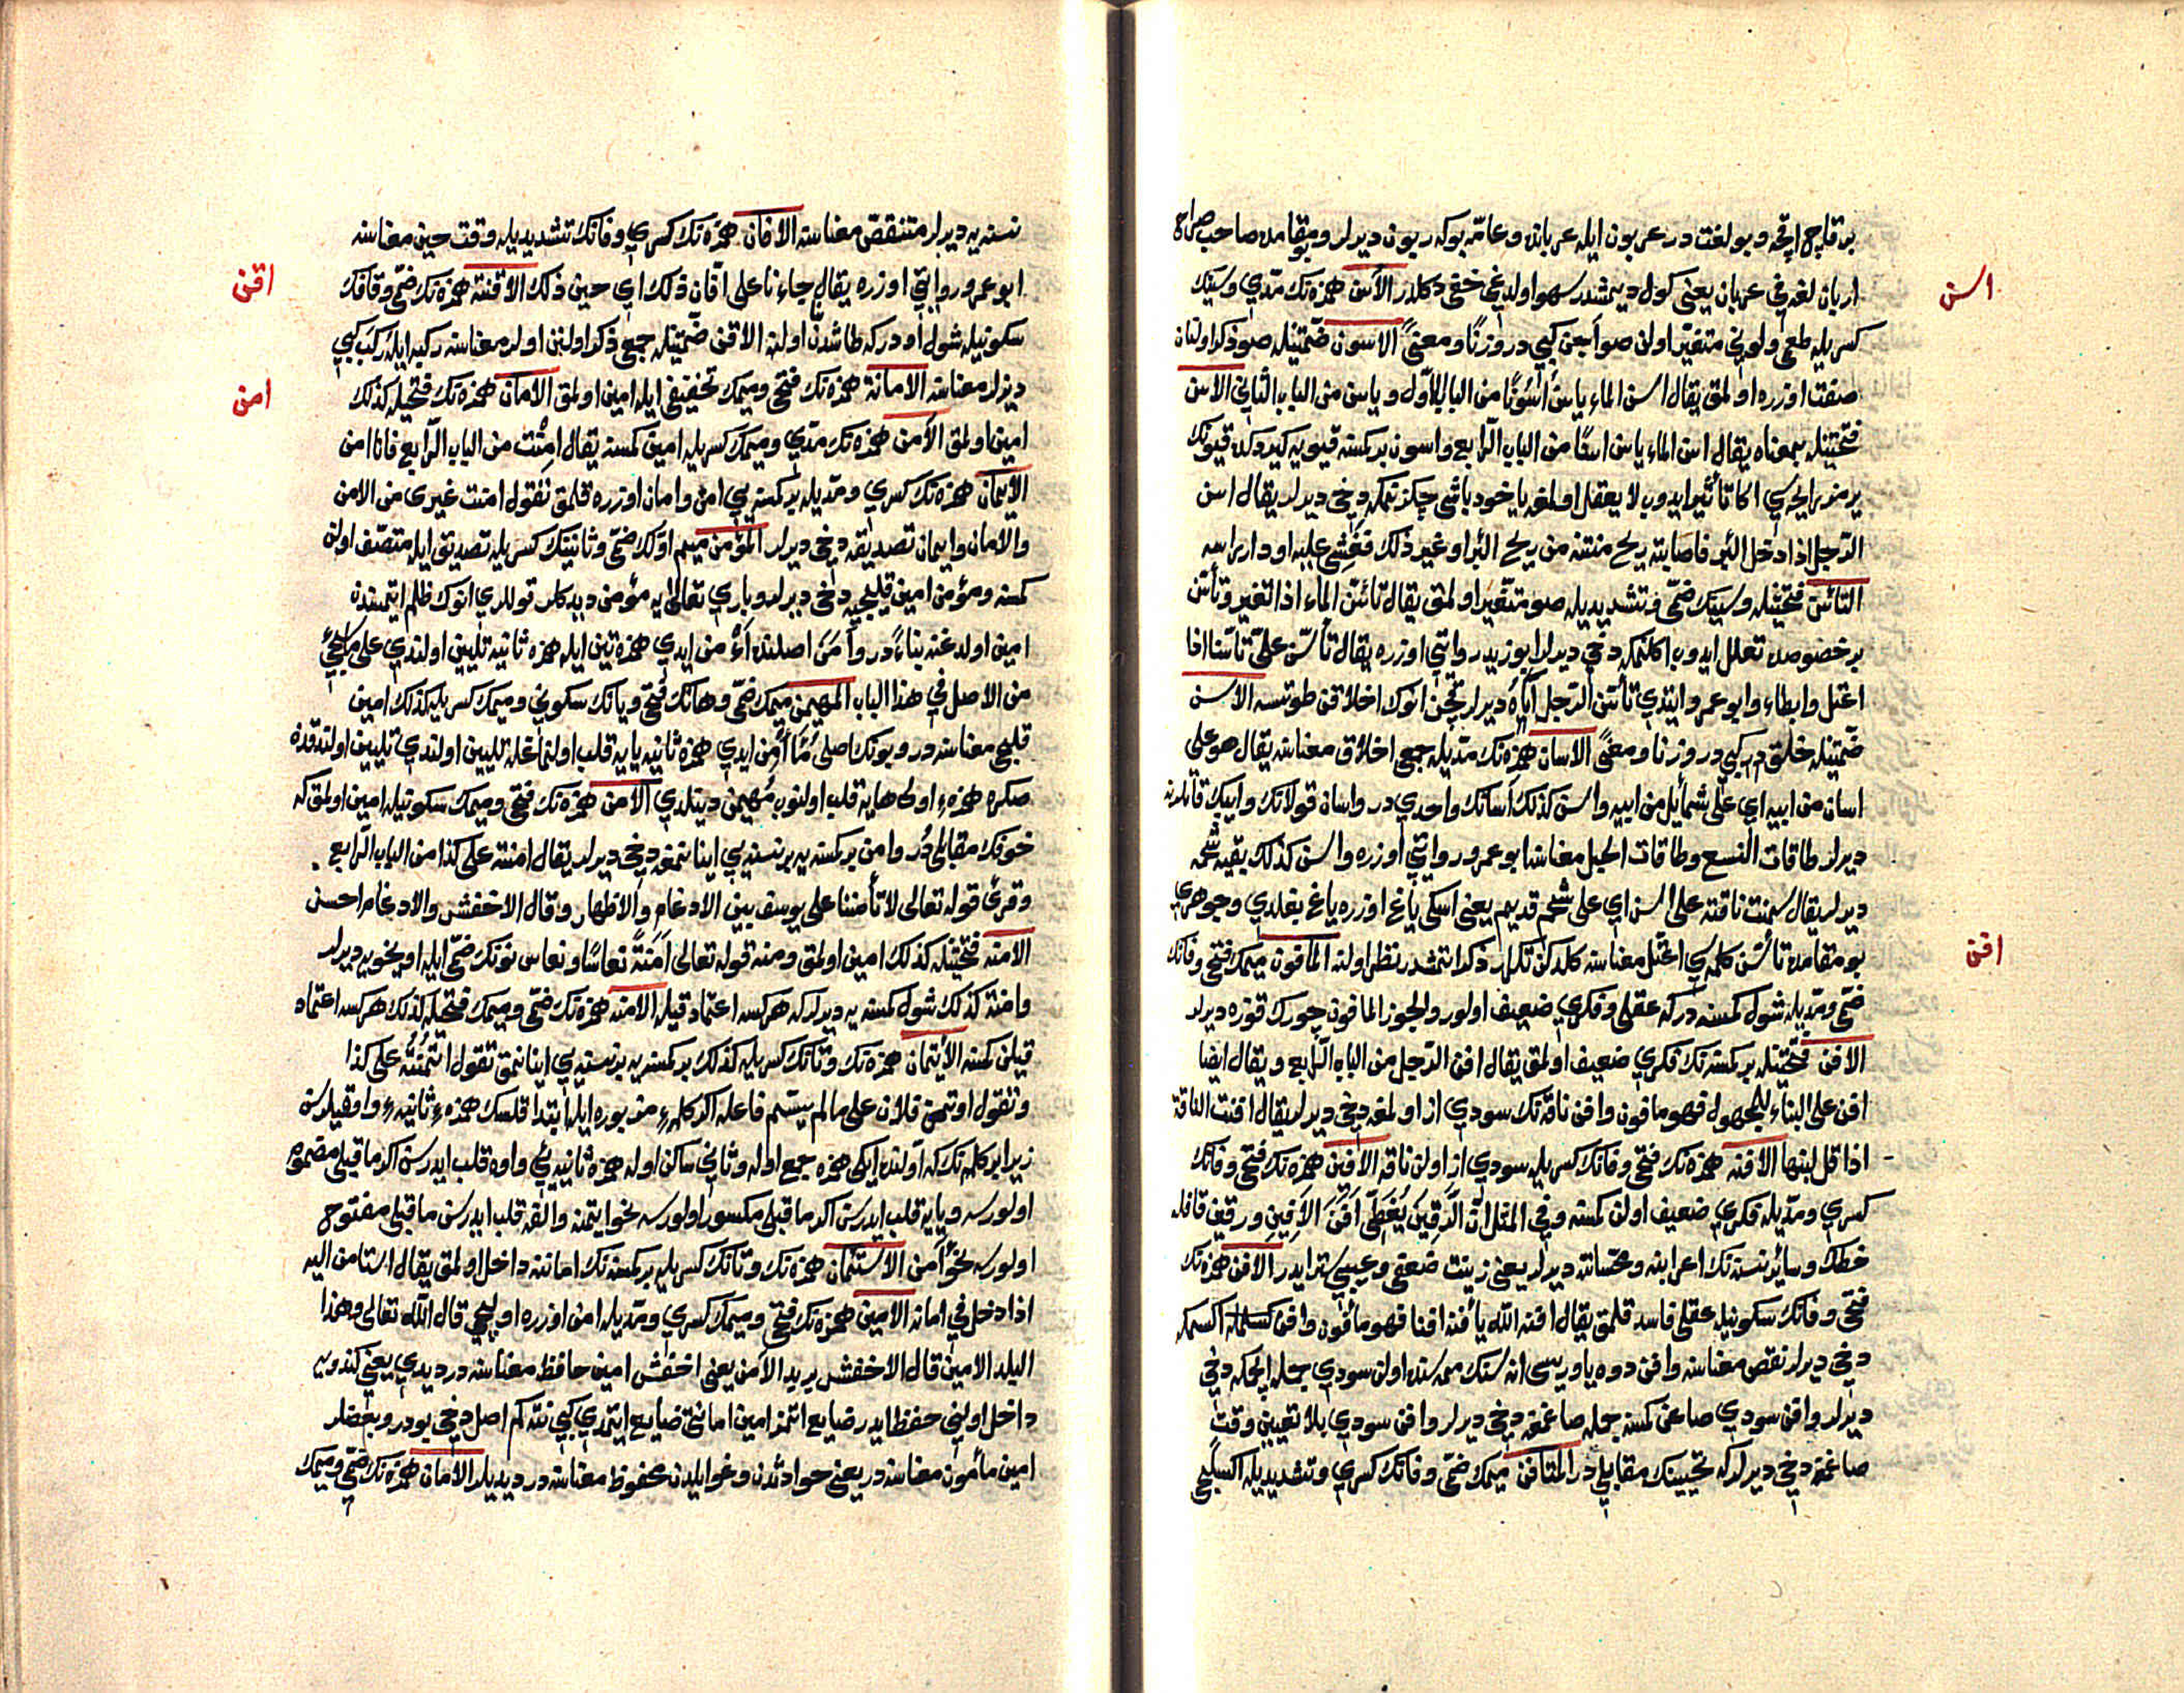 بر قاچ اقچه و بو لغت در عربون ايله عربانده و عامّه بوكه ربون ديرلر و بو مقامده صاحب صراح
اسن
اربان لغة في عربان يعنى كول ديمشدر سهو اولدغى خفى دكلدر الآسن همزه نك مدّي وسينك
كسريله طعمى ولونى متغيّر اولن صو آجن كبى در وزنًا و معنىً الاسون ضمّتيله صو ذكر اولنان
صفت اوزره اولمق يقال اسن الماء ياسن اسونًا من الباب الاوّل وياسن من الباب الثاني الاسن
فتحتيله بمعناه يقال اسن الماء ياسن اسنًا من الباب الرّابع واسون بر كمسنه قيويه كيردكده قيونك
يرمز رايحه سي اكا تأثير ايدوب لا يعقل اولمغه ياخود باشى چكزنمكه دخى ديرلر يقال اسن
الرّجل اذا دخل البئر فاصابته ريح منتنة من ريح البئر او غير ذلك فغشي عليه او دار راسه
التأسّن فتحتيله وسينك ضمّى و تشديديله صو متغيّر اولمق يقال تأسّن الماء اذا تغير وتأسّن
بر خصوصده تعلل ايدوب اكلنمكه دخى ديرلر ابو زيد روايتي اوزره يقال تأسّن علىّ تأسّنا اذا
اعتل وابطاء وابو عمرو ايتدي تأسّن الرّجل اباه ديرلر قچن انوك اخلاقن طوتسه الاسن
ضمّتيله خلق در كبى در وزنا و معنًى الاسان همزه نك مدّيله جمعى اخلاق معناسنه يقال هو على
اسان من ابيه اي على شمائل من ابيه واسن كذلك آسانك واحدي در واسان قولانك وايپك قاتلرينه
ديرلر طاقات النسع وطاقات الحبل معناسنا ابو عمرو روايتي اوزره واسن كذلك بقيه شحمه
ديرلر يقال سمنت ناقته على اسن اي على شحم قديم يعنى اسكى ياغ اوزره ياغ بغلدي وجوهري
افن
بو مقامده تأسّن كلمه سي اعتلّ معناسنه كلدكن تكرار ذكر ايتمشدر نظر اولنه المأفون ميمك فتحى وفانك
ضمّى و مدّيله شول كمسنه در كه عقلى و فكري ضعيف اولور والجوز المافون چورك قوزه ديرلر
الافن فتحتيله بر كمسنه نك فكري ضعيف اولمق يقال افن الرّجل من الباب الرّابع ويقال ايضا
افن على البناء للمجهول فهو مافون وافن ناقه نك سودي از اولمغه دخى ديرلر يقال افنت الناقة
اذا قل لبنها الافنه همزه نك فتحى وفانك كسريله سودي از اولن ناقه الافين همزه نك فتحى وفانك
كسري و مدّيله فكري ضعيف اولن كمسنه وفي المثل انّ الرّقين يُغطّي أفَنَ الاَفِين و رقين قافله
خطك وسائر نسنه نك اعرابنه و محسّناتنه ديرلر يعنى زينت ضعفى وعيبى ستر ايدر الافن همزه نك
فتحى وفانك سكونيله عقلى فاسد قلمق يقال افنه اللّه يأفنه افنا فهو مأفون وافن اكسمكه
دخى ديرلر نقص معناسنه وافن دوه ياوريسى اناسنك ممه سنده اولن سودي جمله ايچمكه دخى
ديرلر وافن سودي صاغن كمسنه جمله صاغمغه دخى ديرلر وافن سودي بلا تعيين وقت
صاغمغه دخى ديرلر كه تحيينك مقابلي در المتأفن ميمك ضمّى وفانك كسري و تشديديله اكسكلى
نسنه يه ديرلر متنقّص معناسنه الافّان همزه نك كسري وفانك تشديديله وقت حين معناسنه
اقن
ابو عمرو روايتي اوزره يقال جاءنا على افّان ذلك اي حين ذلك الاقنة همزه نك ضمّى و قافك
سكونيله شول او در كه طاشدن اولنه الاقن ضمّتيله جمعى ذكر اولنن اولر معناسنه ركبه ايله رُكَب كبى
امن
ديرلر معناسنه الامانة همزه نك فتحى و ميمك تخفيفى ايله امين اولمق الامان همزه نك فتحيله كذلك
امين اولمق الآمن همزه نك مدّي و ميمك كسريله امين كمسنه يقال امِنْت من الباب الرّابع فانا امن
الايمان همزه نك كسري و مدّيله بر كمسنه يى امن وامان اوزره قلمق تقول امنت غيرى من الامن
والامان وايمان تصديقه دخى ديرلر المؤمن ميم اوّلك ضمّى و ثانينك كسريله تصديق ايله متصّف اولن
كمسنه و مؤمن امين قيليجيه دخى ديرلر و باري تعالى يه مؤمن ديدكلر قوللري انوك ظلم ايتمسنده
امين اولدغنه بناءً در و آمَنَ اصلنده أَأْمن ايدي همزه تين ايله همزه ثانيه تليين اولندي على ما يجئ
من الاصل في هذا الباب المهيمن ميمك ضمّى و هانك فتحى و يانك سكونى و ميمك كسريله كذلك امين
قليجى معناسنه در و بونك اصلى مُأَأْمِن ايدي همزه ثانيه يايه قلب اولنماغله تليين اولندي تليين اولندقدنه
صكره همزهء اولى هايه قلب اولنوب مُهيمن دينلدي الامن همزه نك فتحى و ميمك سكونيله امين اولمق كه
خوفك مقابلى در وامن بر كمسنه يه بر نسنه يى اينانمغه دخى ديرلر يقال امنته على كذا من الباب الرابع
وقرئ قوله تعالى لا تأمنّا على يوسف بين الادغام والاظهار وقال الاخفش والادغام احسن
الامنه فتحتيله كذلك امين اولمق ومنه قوله تعالى أمَنَةً نعاسًا و نعاس نونك ضمّى ايله اويخويه ديرلر
وامنة كذلك شول كمسنه يه ديرلر كه هر كسه اعتماد قيله الامنه همزه نك ضمّى و ميمك فتحيله كذلك هر كسه اعتماد
قيلن كمسنه الائتمان همزه نك و تانك كسريله كذلك بر كمسنه يه بر نسنه يى اينانمق تقول ائتمنته على كذا
وتقول اوتمن فلان على ما لم يسمّ فاعله اكر كلمهء مزبوره ايله ابتدا قلسك همزهء ثانيه يى واو قيلورسن
زيرا بر كلمه نك كه اولنده ايكى همزه جمع اوله و ثانى ساكن اوله همزه ثانيه يى واوه قلب ايدرسن اكر ما قبلى مضموم
اولورسه و يايه قلب ايدرسن اكر ما قبلى مكسور اولورسه نحو ايتمنه والفه قلب ايدرسن ما قبلى مفتوح
اولورسه نحو آمن الاستئمان همزه نك و تانك كسريله بر كمسنه نك اماننه داخل اولمق يقال استامن اليه
اذا دخل في امانه الامين همزه نك فتحى و ميمك كسري و مدّيله امن اوزره اوليجى قال اللّه تعالى وهذا
البلد الامين قال الاخفش يريد الآمن يعنى اخفش امين حافظ معناسنه در ديدي يعنى كندوسنه
داخل اولنى حفظ ايدر ضايع ائتمز امين امانتى ضايع ايتمدي كبى نته كم اصل دخى بودر و بعضلر
امين مأمون معناسنه در يعنى حوادثدن و غوايلدن محفوظ معناسنه در ديديلر الامان همزه نك ضمّى و ميمك